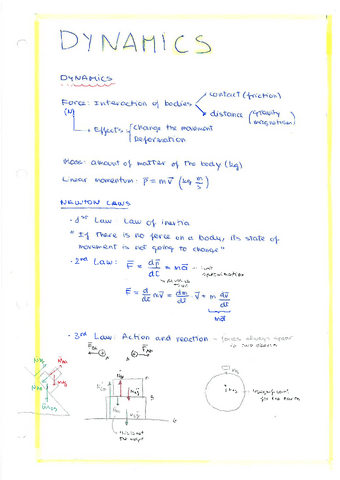 DYNAMICS
DYNAMICS
Force: Interaction of bodies
contact (friction)
distance (gravity
magnetism)
(N)
Effects
Change the movement
Deformation
Mass: amount of matter of the body (kg)
Linear momentum: p⃗ = mv⃗ (kg m/s)
NEWTON LAWS
· 1st Law: Law of inertia
"If there is no force on a body, its state of
movement is not going to change"
· 2nd Law: F⃗ = dp⃗/dt = ma⃗
F⃗ = d/dt mv⃗ = dm/dt · v⃗ + m dv⃗/dt
ma⃗
· 3rd Law: Action and reaction - forces always appear
in two bodies